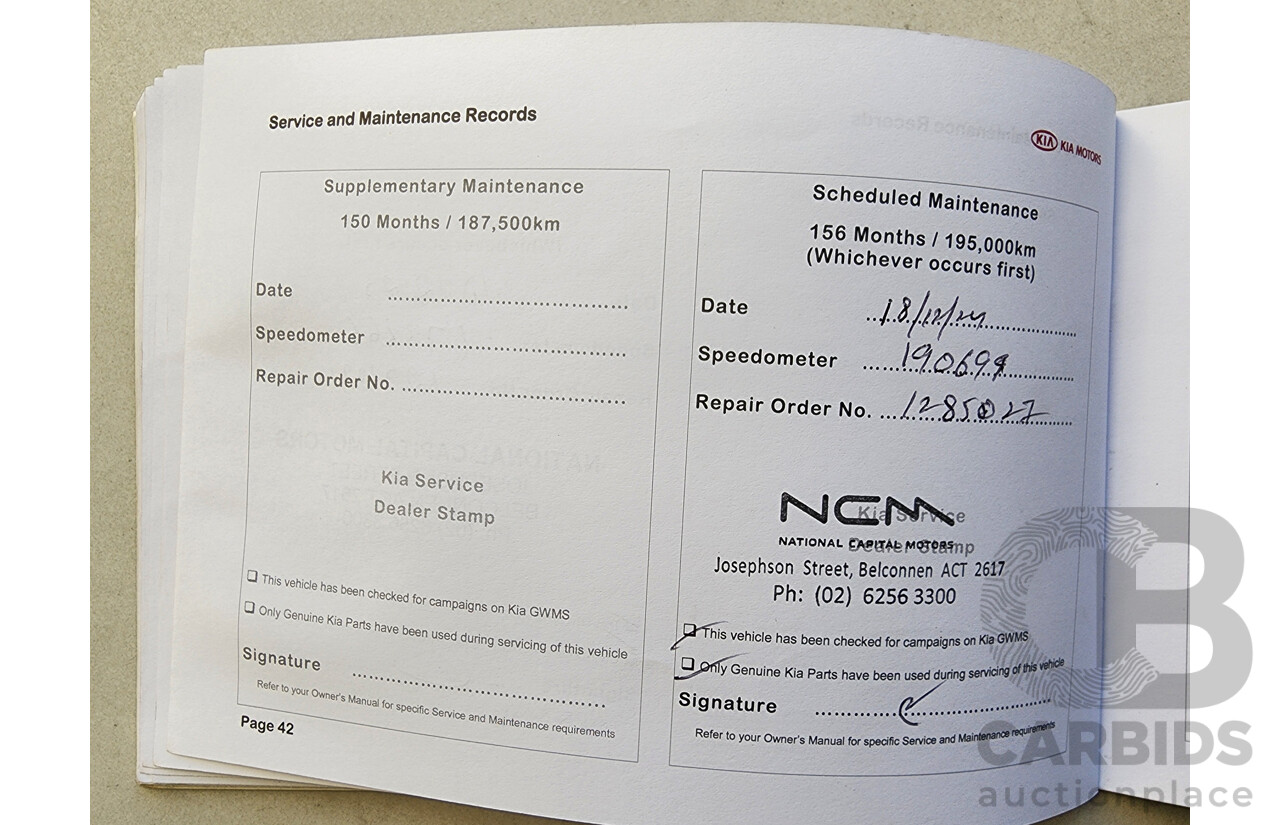 Service and Maintenance Records
KIA KIA MOTORS
Supplementary Maintenance
150 Months / 187,500km
Date
Speedometer
Repair Order No.
Kia Service
Dealer Stamp
This vehicle has been checked for campaigns on Kia GWMS
Only Genuine Kia Parts have been used during servicing of this vehicle
Signature
Refer to your Owner's Manual for specific Service and Maintenance requirements
Page 42
Scheduled Maintenance
156 Months / 195,000km
(Whichever occurs first)
Date 18/12/24
Speedometer 190699
Repair Order No. 1285027
NCM
Kia Service
NATIONAL CAPITAL MOTORS
Dealer Stamp
Josephson Street, Belconnen ACT 2617
Ph: (02) 6256 3300
This vehicle has been checked for campaigns on Kia GWMS
Only Genuine Kia Parts have been used during servicing of this vehicle
Signature
Refer to your Owner's Manual for specific Service and Maintenance requirements
CB
CARBIDS
auctionplace